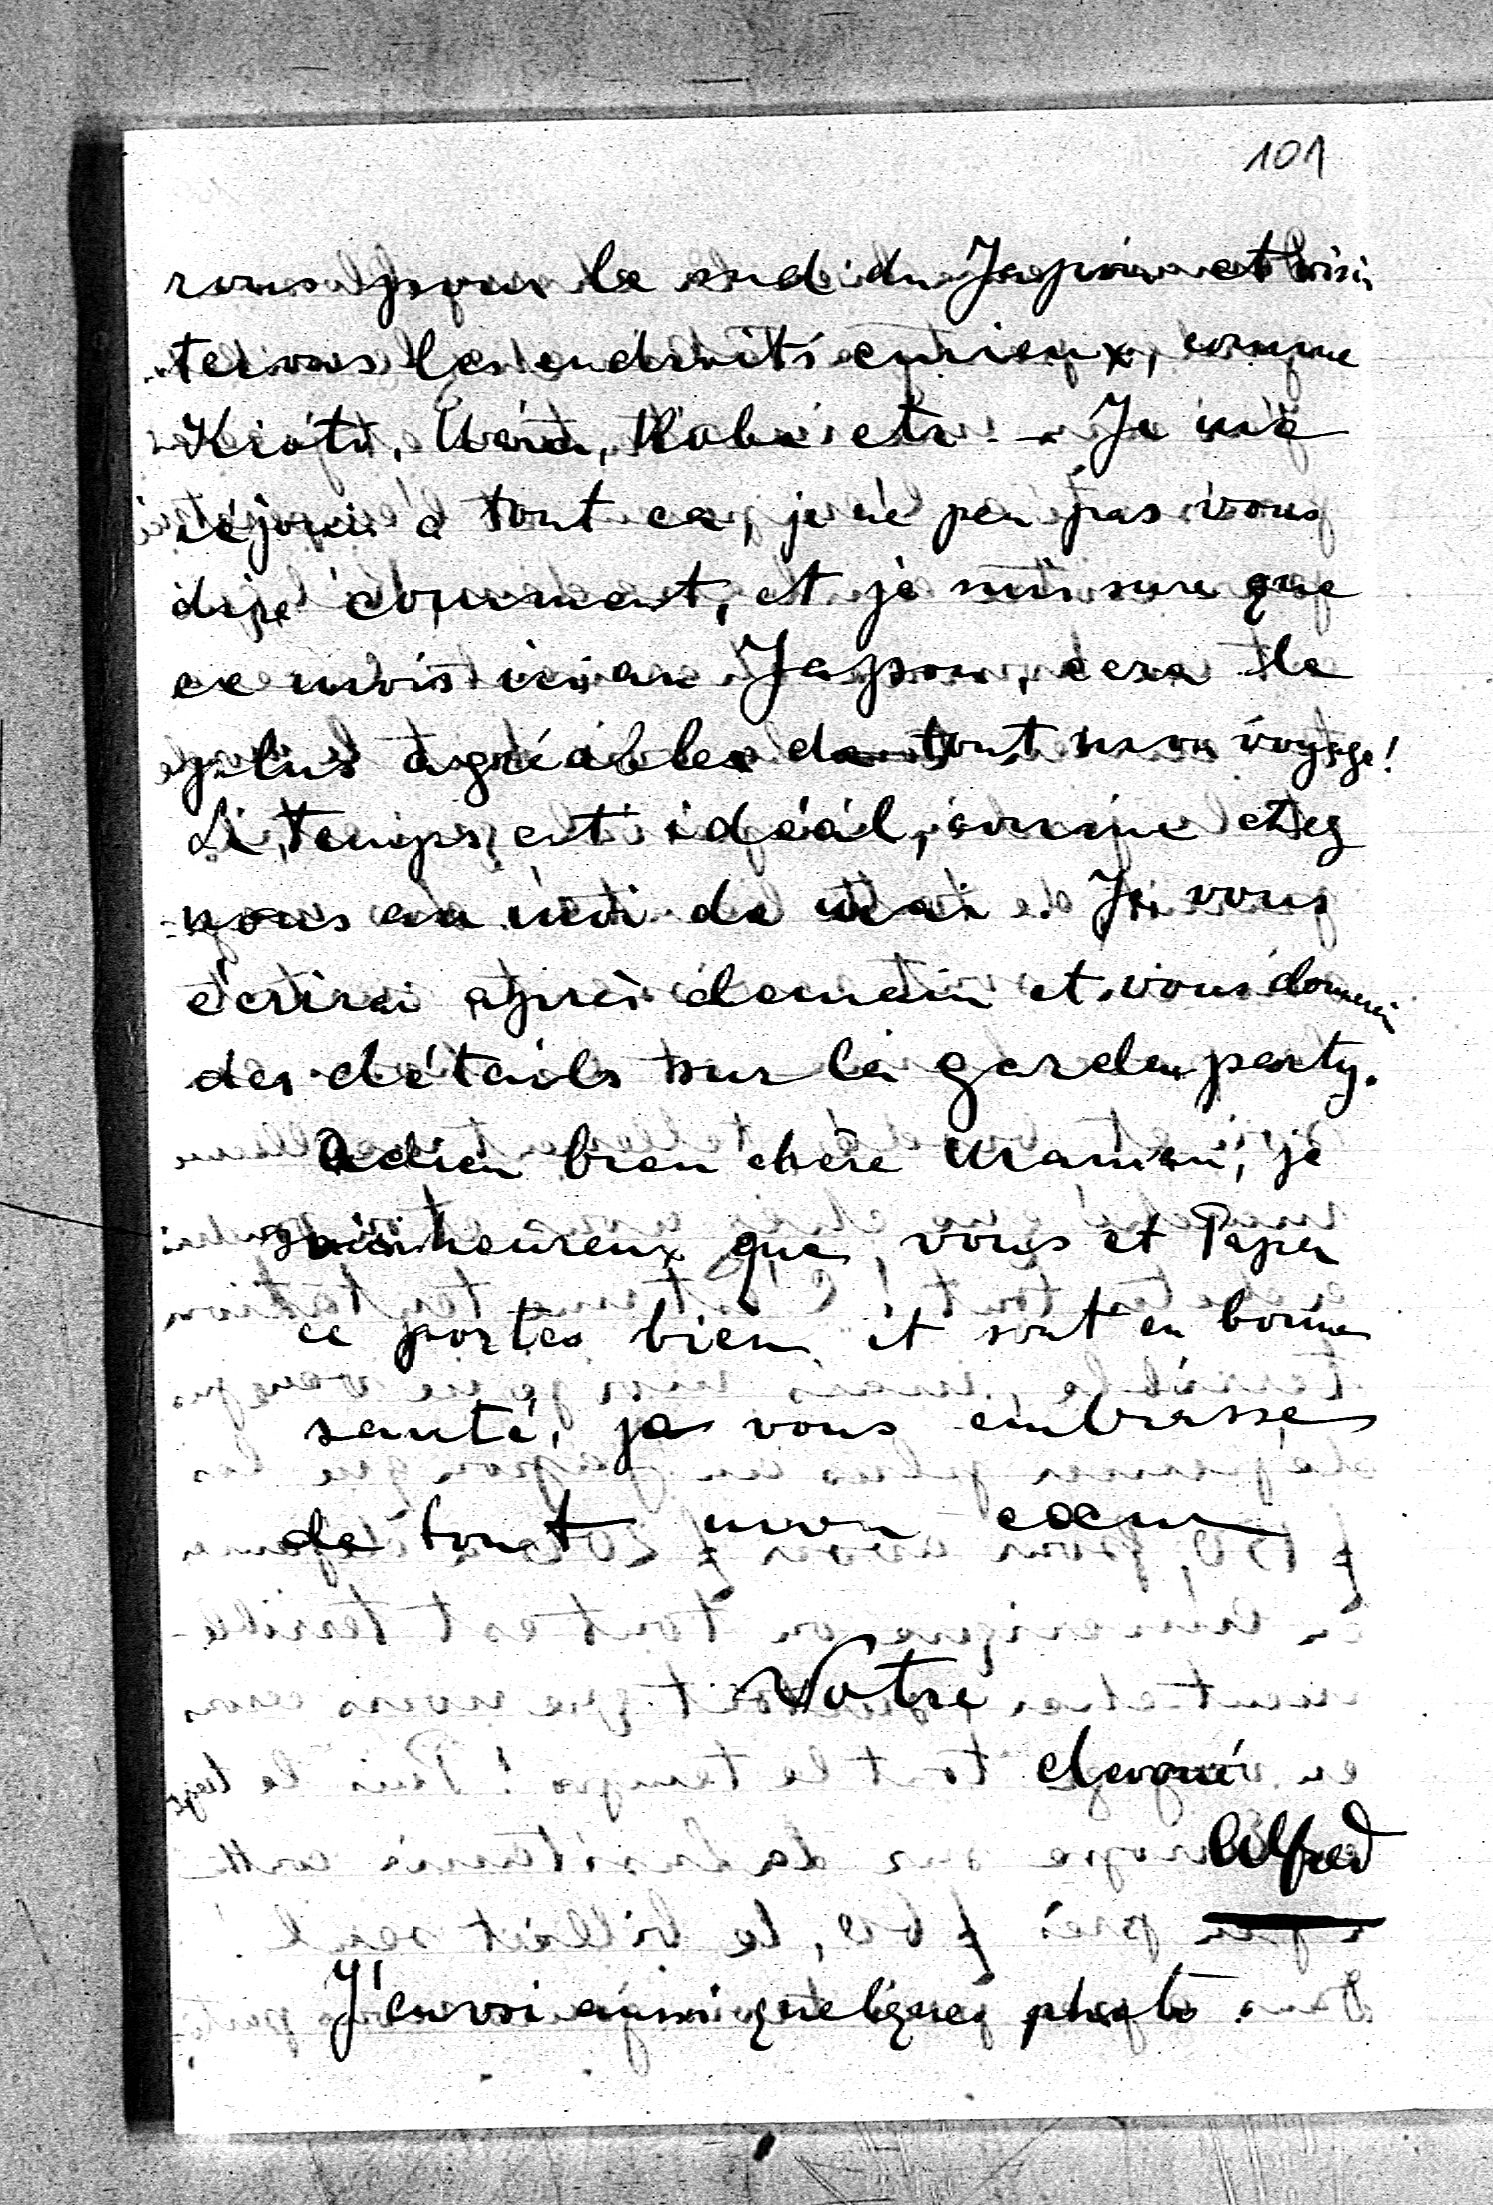 101
rons pour le sud du Japon et visi
terons les endroits curieux, comme
Kioto, Nara, Kobe etc. – Je me
réjoui a tout ca, je ne peu pas vous
dire comment, et je suis sure que
ce mois ici au Japon, cera le
plus agréables de tout mon voyage!
Le temps est idéal, comme chez
nous au moi de mai. Je vous
écrirai après demain et vous donnerai
des détails sur la garden party.
Adieu bien chère Maman, je
suis heureux que vous et Papa
ce portes bien et sont en bonne
santé, je vous embrasse
de tout mon coeur
Votre
Alfred
J'envoi aussi quelques photo.